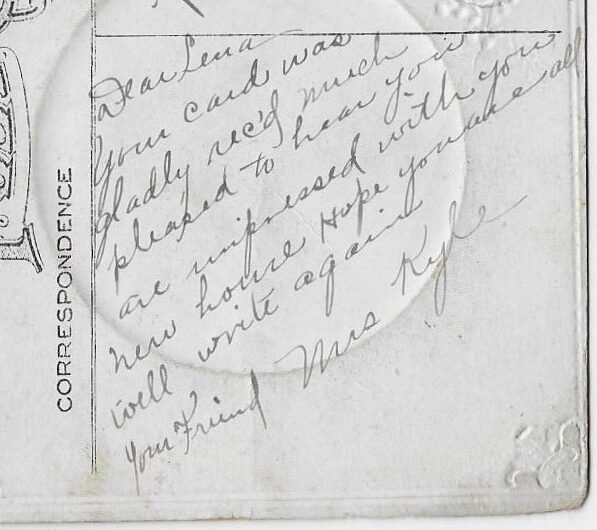 CORRESPONDENCE
Dear Lena
Your card was
gladly rec'd much
pleased to hear you
are impressed with you
new house Hope you are all
well write again
Your Friend Mrs Kyle